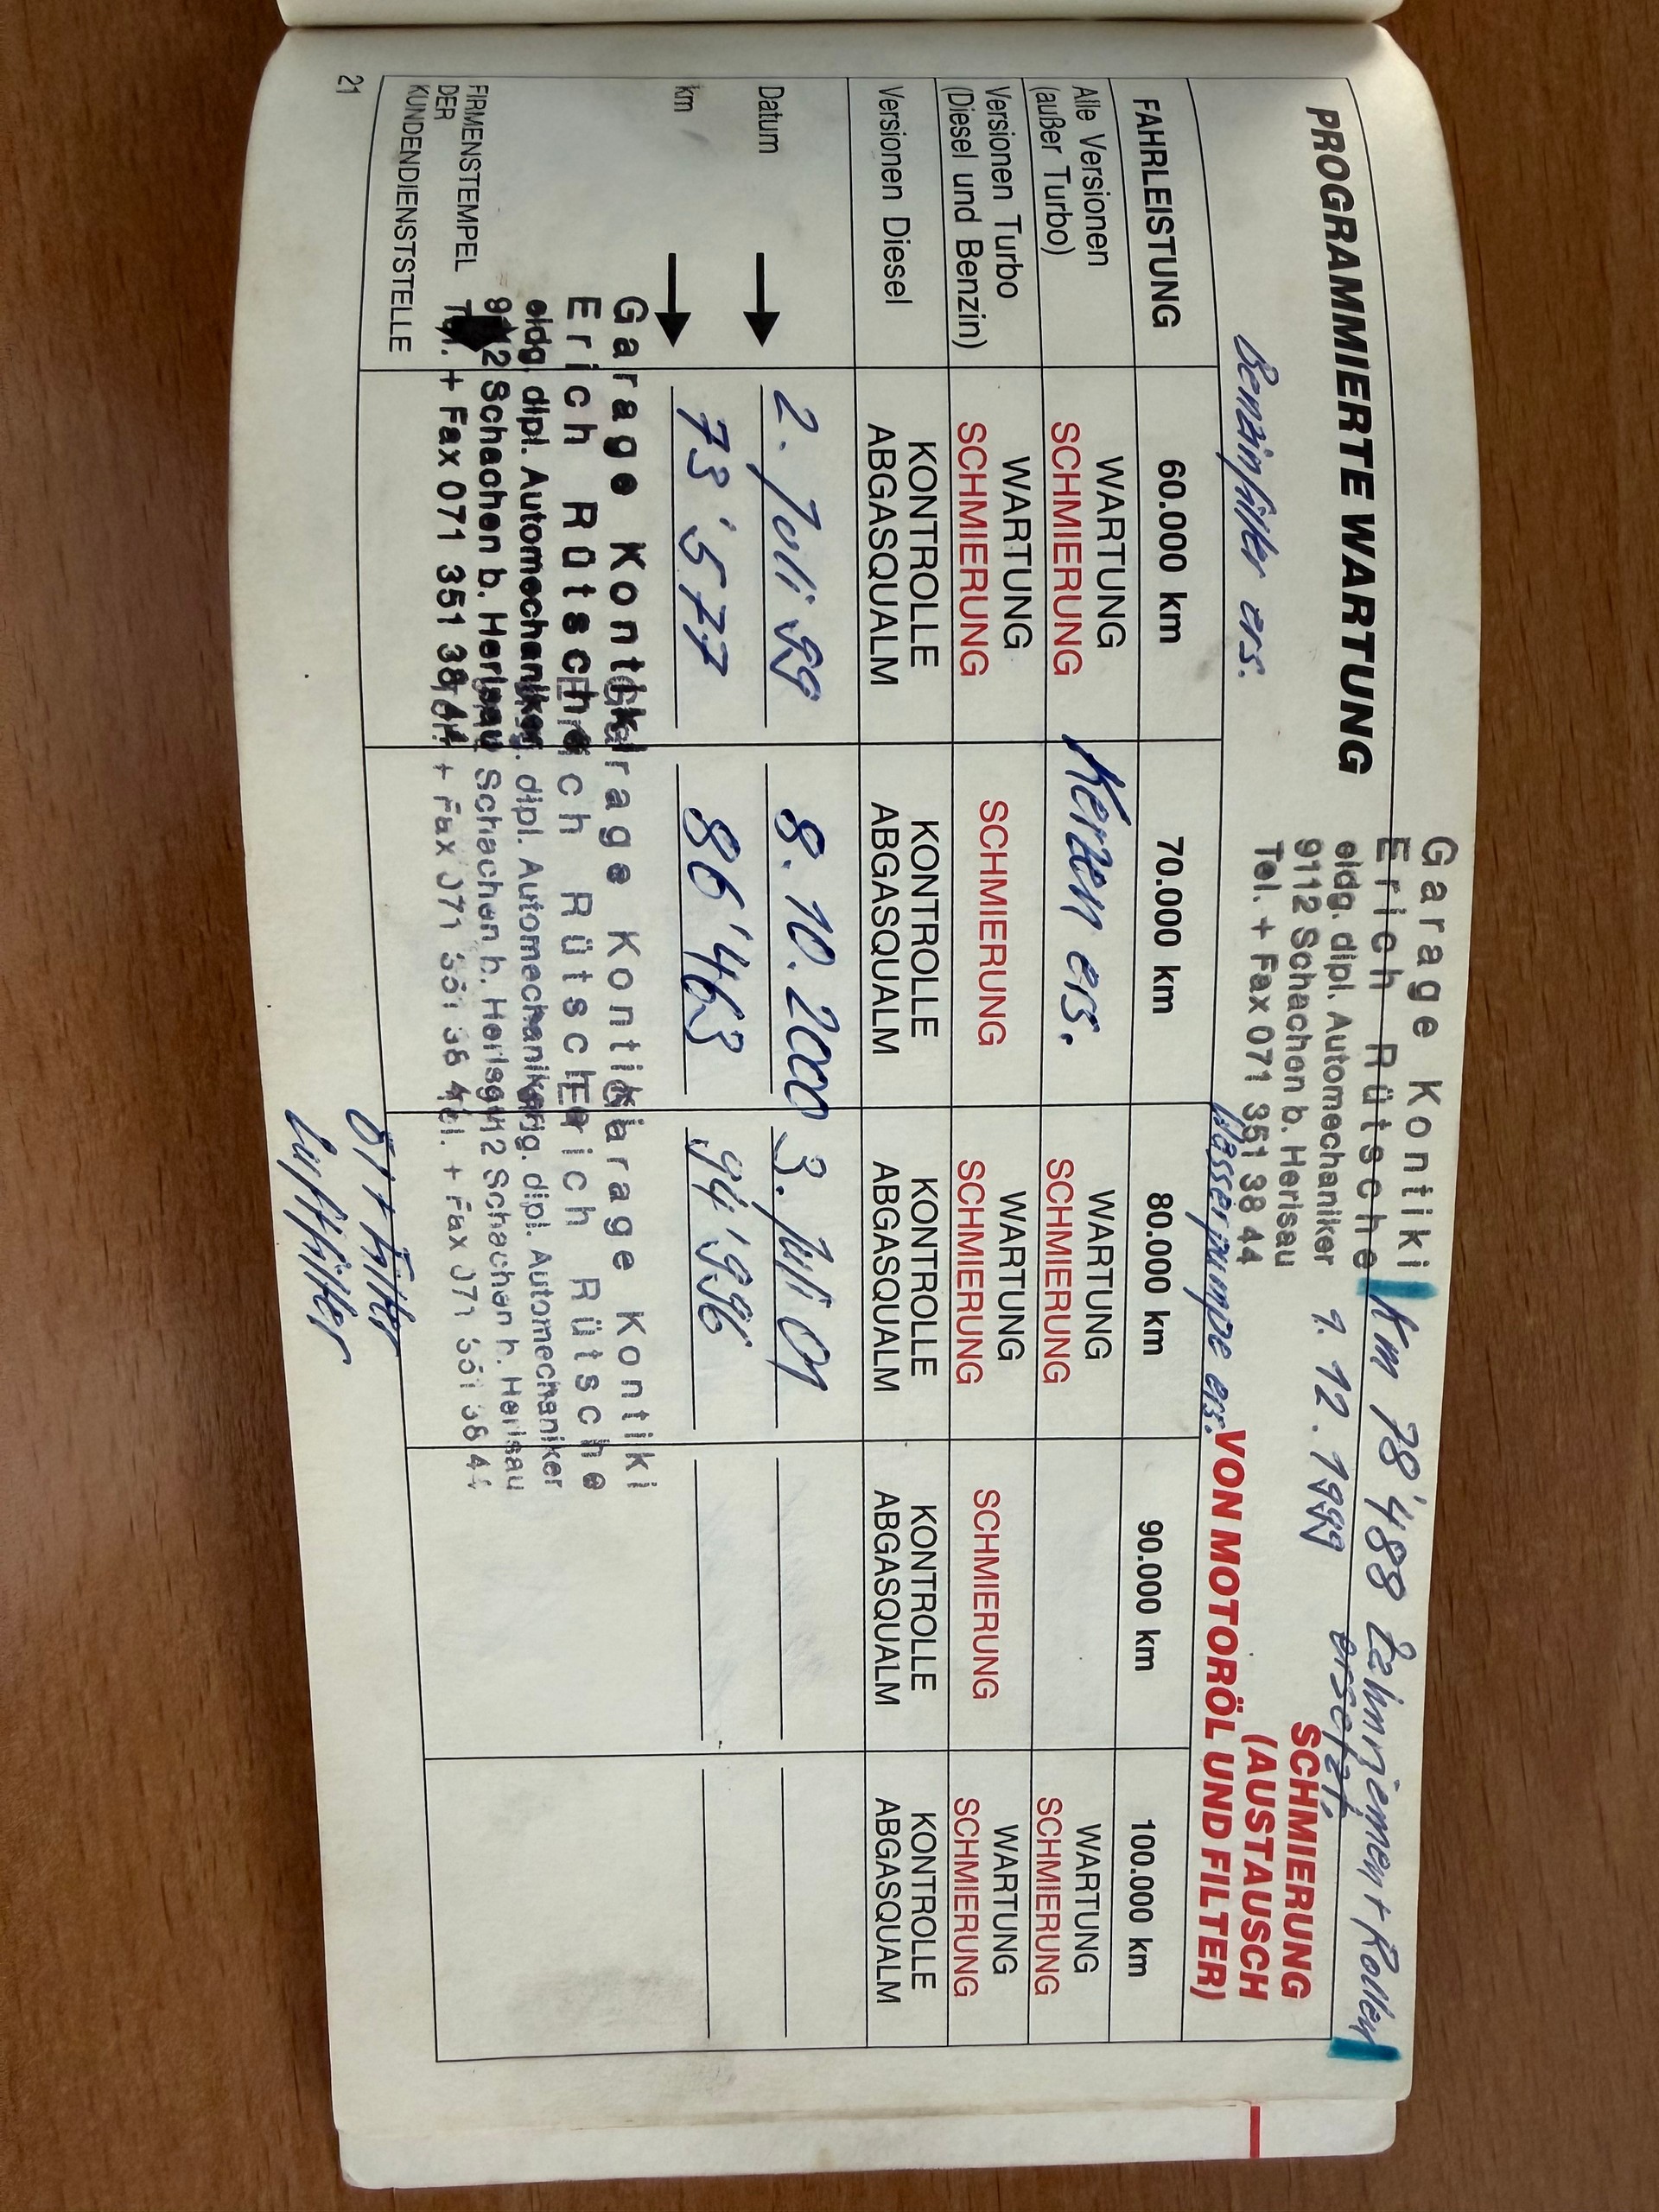 PROGRAMMIERTE WARTUNG
Garage Kontiki
Erich Rütsche
eidg. dipl. Automechaniker
9112 Schachen b. Herisau
Tel. + Fax 071 351 38 44
Km 78'488 Zahnriemen + Rollen
9. 12. 1999 ersetzt.
Benzinfilter ers.
Wasserpumpe ers.
SCHMIERUNG
(AUSTAUSCH
VON MOTORÖL UND FILTER)
FAHRLEISTUNG 60.000 km 70.000 km 80.000 km 90.000 km 100.000 km
Kerzen ers.
Alle Versionen WARTUNG WARTUNG WARTUNG
(außer Turbo) SCHMIERUNG SCHMIERUNG SCHMIERUNG
Versionen Turbo WARTUNG SCHMIERUNG WARTUNG SCHMIERUNG WARTUNG
(Diesel und Benzin) SCHMIERUNG SCHMIERUNG SCHMIERUNG
Versionen Diesel KONTROLLE KONTROLLE KONTROLLE KONTROLLE KONTROLLE
ABGASQUALM ABGASQUALM ABGASQUALM ABGASQUALM ABGASQUALM
Datum 2. Juli 99 8. 10. 2000 3. Juli 01
km 73'577 86'463 94'996
Garage Kontiki Garage Kontiki Garage Kontiki
Erich Rütsche Erich Rütsche Erich Rütsche
eidg. dipl. Automechaniker eidg. dipl. Automechaniker eidg. dipl. Automechaniker
9112 Schachen b. Herisau 9112 Schachen b. Herisau 9112 Schachen b. Herisau
Tel. + Fax 071 351 38 44 Tel. + Fax 071 351 38 44 Tel. + Fax 071 351 38 44
FIRMENSTEMPEL
DER
KUNDENDIENSTSTELLE
Öl + Filter
Luftfilter
21